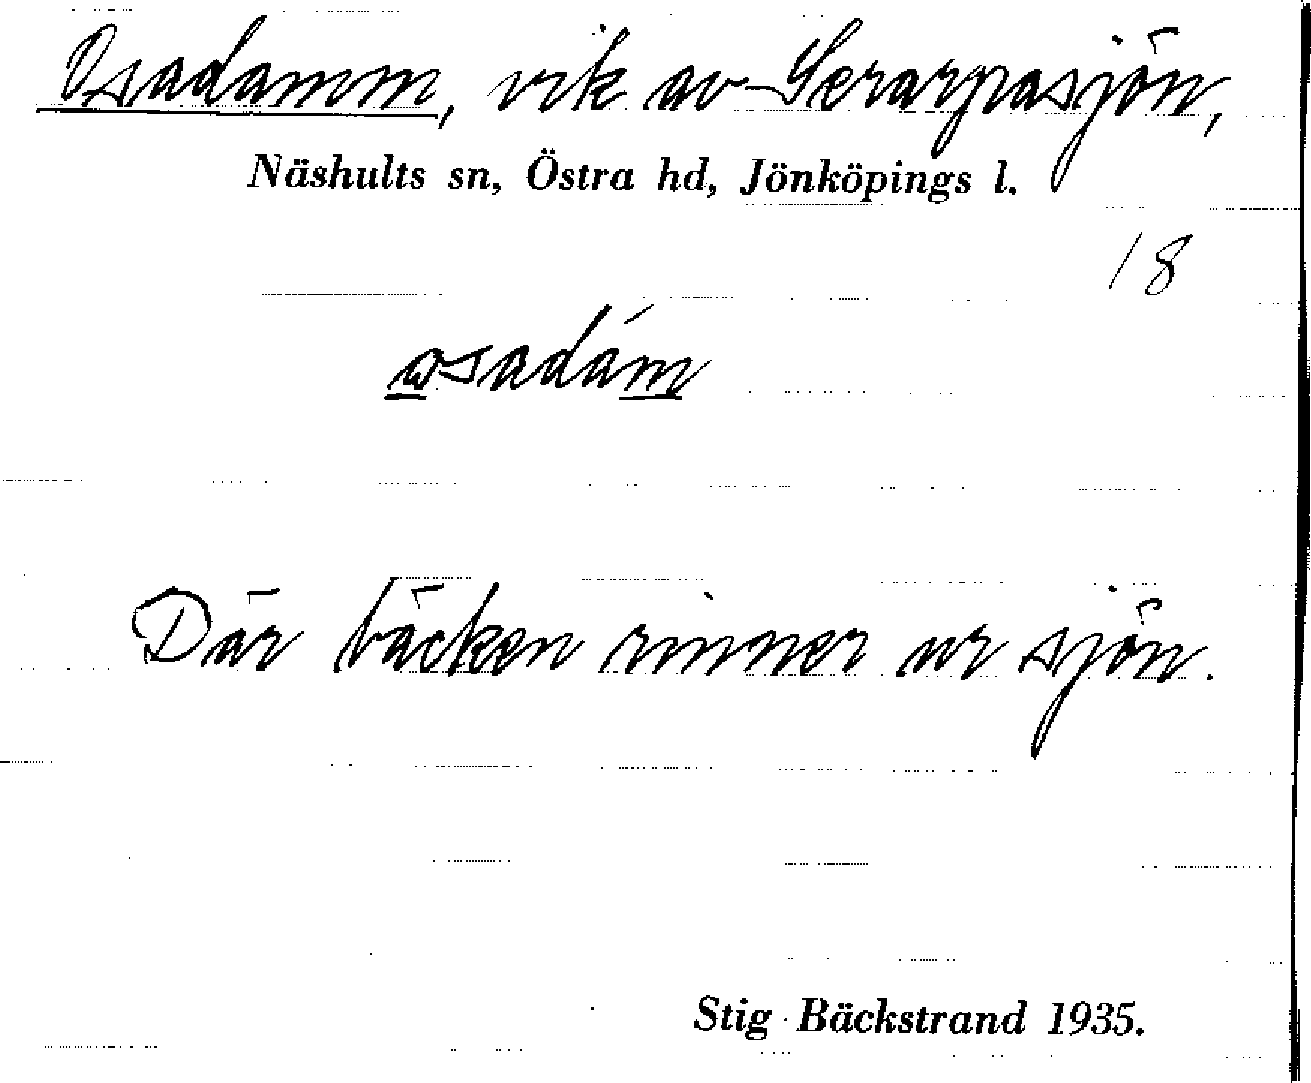 Osadamm, vik av Serarpasjön,
Näshults sn, Östra hd, Jönköpings l.
18
osadám
Där bäcken rinner ur sjön.
Stig Bäckstrand 1935.